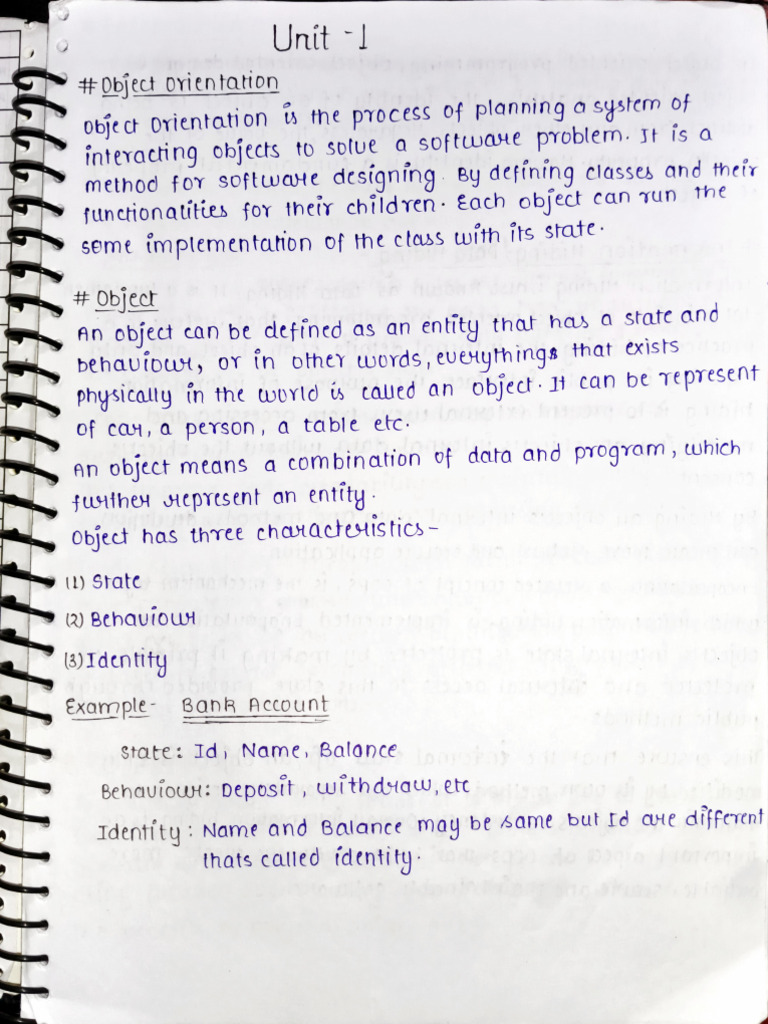 Unit - 1
# Object Orientation
Object Orientation is the process of planning a system of
interacting objects to solve a software problem. It is a
method for software designing. By defining classes and their
functionalities for their children. Each object can run the
some implementation of the class with its state.
# Object
An object can be defined as an entity that has a state and
behaviour, or in other words, everythings that exists
physically in the world is called an object. It can be represent
of car, a person, a table etc.
An object means a combination of data and program, which
further represent an entity.
Object has three characteristics-
(1) State
(2) Behaviour
(3) Identity
Example- Bank Account
State: Id, Name, Balance
Behaviour: Deposit, withdraw, etc
Identity: Name and Balance may be same but Id are different
thats called identity.